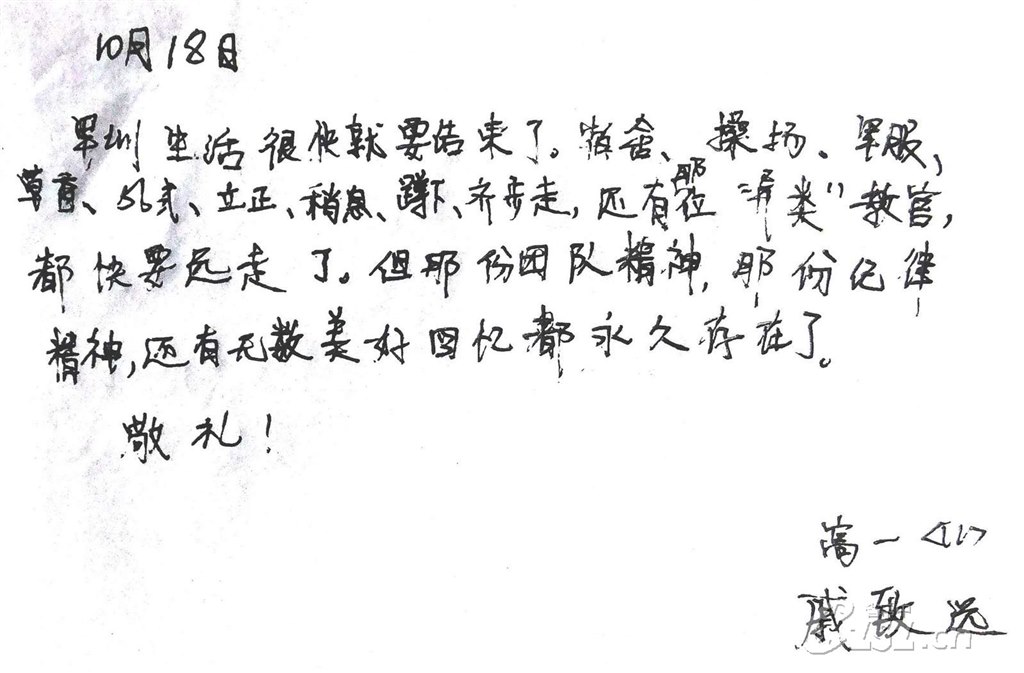 10月18日
军训生活很快就要结束了。宿舍、操场、军服,
草育、56式、立正、稍息、蹲下、齐步走,还有那位“异类”教官,
都快要远走了。但那份团队精神,那份纪律
精神,还有无数美好回忆都永久存在了。
敬礼!
高一<11>
戚致远